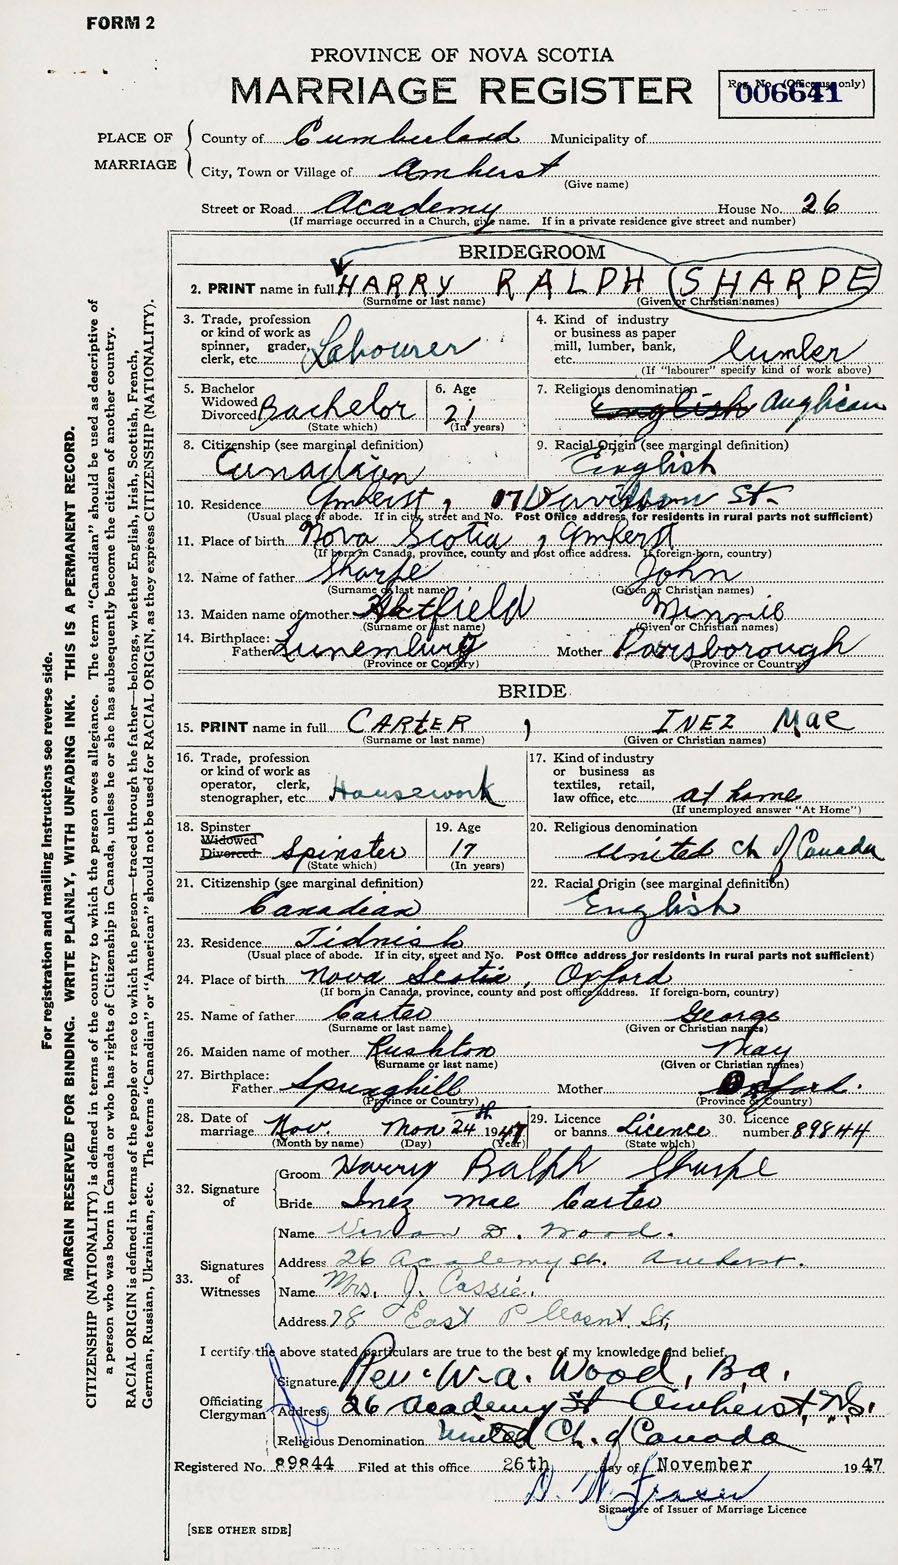 FORM 2
PROVINCE OF NOVA SCOTIA
MARRIAGE REGISTER
Reg. No. (Office use only)
006641
PLACE OF MARRIAGE
County of Cumberland Municipality of
City, Town or Village of Amherst
(Give name)
Street or Road Academy House No. 26
(If marriage occurred in a Church, give name. If in a private residence give street and number)
BRIDEGROOM
2. PRINT name in full HARRY RALPH SHARPE
(Surname or last name) (Given or Christian names)
3. Trade, profession or kind of work as spinner, grader, clerk, etc. Labourer
4. Kind of industry or business as paper mill, lumber, bank, etc. lumber
(If "labourer" specify kind of work above)
5. Bachelor Widowed Divorced Bachelor
(State which)
6. Age 21
(In years)
7. Religious denomination English Anglican
8. Citizenship (see marginal definition) Canadian
9. Racial Origin (see marginal definition) English
10. Residence Amherst, 07 Davidson St.
(Usual place of abode. If in city, street and No. Post Office address for residents in rural parts not sufficient)
11. Place of birth Nova Scotia, Amherst
(If born in Canada, province, county and post office address. If foreign-born, country)
12. Name of father Sharpe John
(Surname or last name) (Given or Christian names)
13. Maiden name of mother Hatfield Minnie
(Surname or last name) (Given or Christian names)
14. Birthplace: Father Lunemburg Mother Parsborough
(Province or Country) (Province or Country)
BRIDE
15. PRINT name in full CARTER, INEZ MAE
(Surname or last name) (Given or Christian names)
16. Trade, profession or kind of work as operator, clerk, stenographer, etc. Housework
17. Kind of industry or business as textiles, retail, law office, etc. at home
(If unemployed answer "At Home")
18. Spinster Widowed Divorced Spinster
(State which)
19. Age 17
(In years)
20. Religious denomination United Ch of Canada
21. Citizenship (see marginal definition) Canadian
22. Racial Origin (see marginal definition) English
23. Residence Tidnish
(Usual place of abode. If in city, street and No. Post Office address for residents in rural parts not sufficient)
24. Place of birth Nova Scotia, Oxford
(If born in Canada, province, county and post office address. If foreign-born, country)
25. Name of father Carter George
(Surname or last name) (Given or Christian names)
26. Maiden name of mother Rushton May
(Surname or last name) (Given or Christian names)
27. Birthplace: Father Springhill Mother Oxford.
(Province or Country) (Province or Country)
28. Date of marriage Nov. Mon 24th 1947
(Month by name) (Day) (Year)
29. Licence or banns Licence
(State which)
30. Licence number 89844
32. Signature of
Groom Harry Ralph Sharpe
Bride Inez Mae Carter
33. Signatures of Witnesses
Name D. Wood.
Address 26 Academy St. Amherst.
Name Mrs. J. Cassie.
Address 78 East Pleasnt. St.
I certify the above stated particulars are true to the best of my knowledge and belief.
Officiating Clergyman
Signature Rev. W. A. Wood, B.a.
Address 26 Academy St Amherst, N.S.
Religious Denomination United Ch. of Canada
Registered No. 89844 Filed at this office 26th day of November 1947
D. W. Fraser
Signature of Issuer of Marriage Licence
[SEE OTHER SIDE]
For registration and mailing instructions see reverse side.
MARGIN RESERVED FOR BINDING. WRITE PLAINLY, WITH UNFADING INK. THIS IS A PERMANENT RECORD.
CITIZENSHIP (NATIONALITY) is defined in terms of the country to which the person owes allegiance. The term "Canadian" should be used as descriptive of
a person who was born in Canada or who has rights of Citizenship in Canada, unless he or she has subsequently become the citizen of another country.
RACIAL ORIGIN is defined in terms of the people or race to which the person—traced through the father—belongs, whether English, Irish, Scottish, French,
German, Russian, Ukrainian, etc. The terms "Canadian" or "American" should not be used for RACIAL ORIGIN, as they express CITIZENSHIP (NATIONALITY).